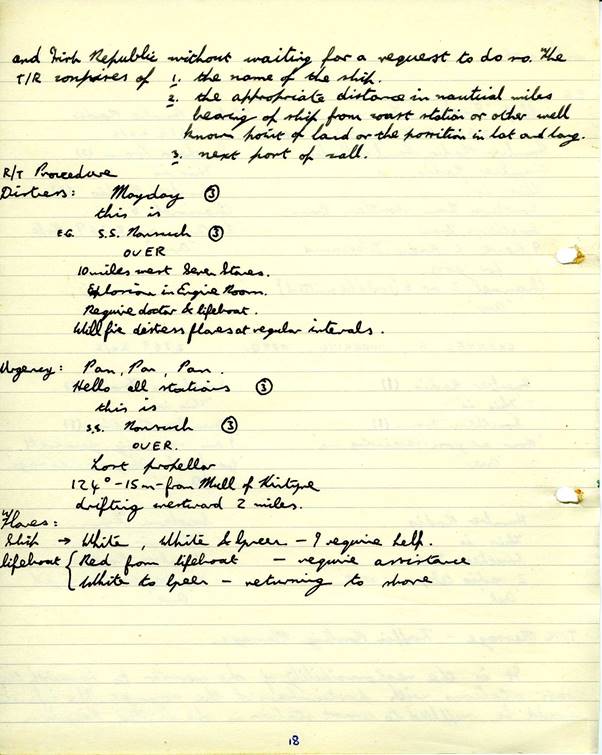 and Irish Republic without waiting for a request to do so. The
T/R comprises of 1. the name of the ship.
2. the appropriate distance in nautical miles
bearing of ship from coast station or other well
known point of land or the position in lat and long.
3. next port of call.
R/T Procedure
Distress: Mayday ③
this is
E.G. S.S. Nonsuch ③
OVER
10 miles west Seven Stones.
Explosion in Engine Room.
Require doctor & lifeboat.
Will fire distress flares at regular intervals.
Urgency: Pan, Pan, Pan.
Hello all stations ③
this is
S.S. Nonsuch ③
OVER.
Lost propellar
124° - 15m - from Mull of Kintyre
drifting westward 2 miles.
Flares:
Ship → White, White & Green - I require help.
lifeboat { Red from lifeboat - require assistance
White to Green - returning to shore
18